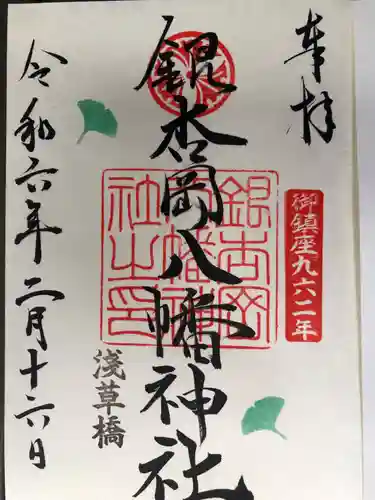 奉拝
御鎮座九六二年
銀杏岡八幡神社
銀杏岡八幡神社之印
浅草橋
令和六年二月十六日